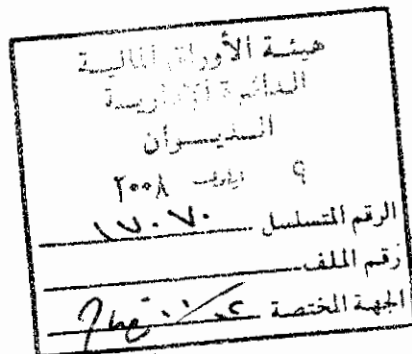 هيئة الأوراق المالية
الدائرة الإدارية
الديوان
٩ ٢٠٠٨
الرقم المتسلسل ١٧٠٧٠
رقم الملف
الجهة المختصة